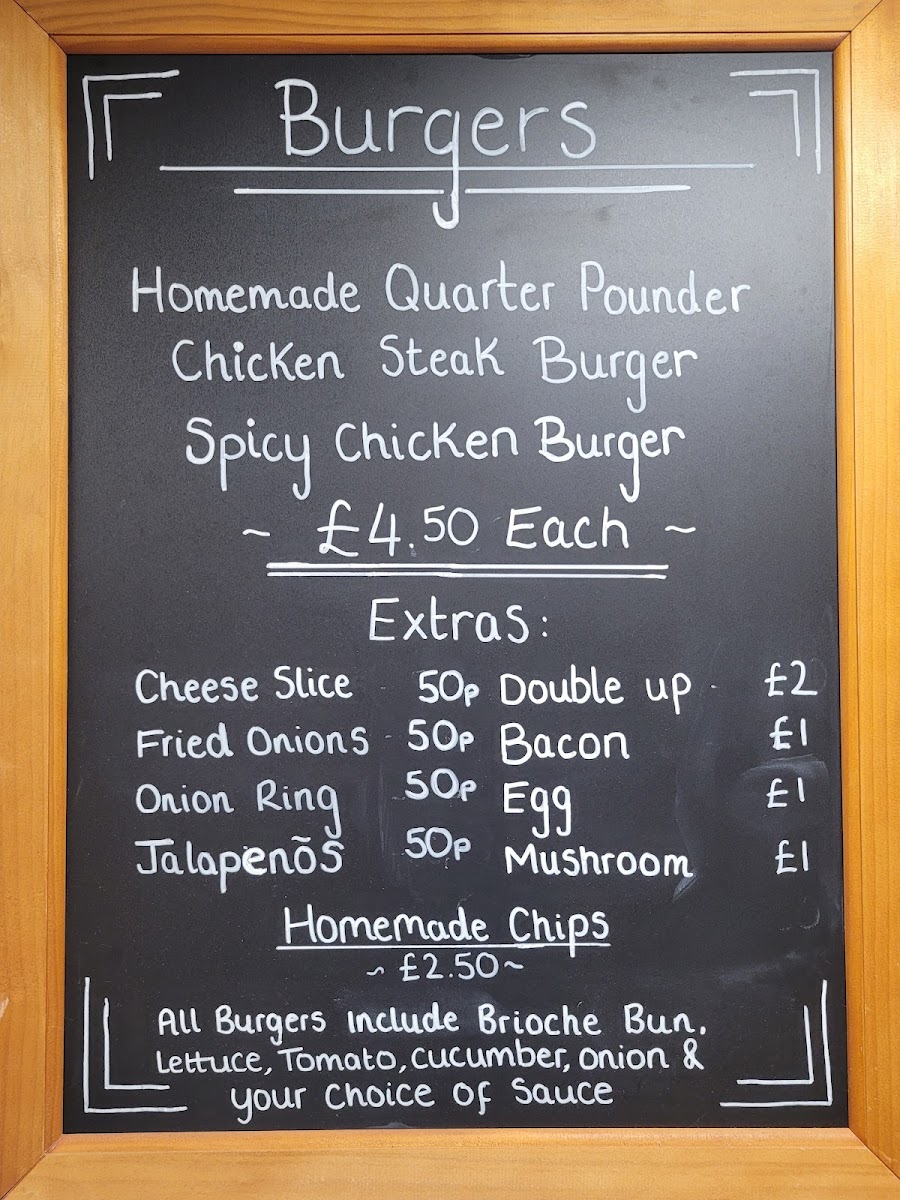 Burgers
Homemade Quarter Pounder
Chicken Steak Burger
Spicy Chicken Burger
~ £4.50 Each ~
Extras:
Cheese Slice 50p Double up £2
Fried Onions 50p Bacon £1
Onion Ring 50p Egg £1
Jalapenõs 50p Mushroom £1
Homemade Chips
~ £2.50 ~
All Burgers Include Brioche Bun,
Lettuce, Tomato, cucumber, onion &
your choice of sauce